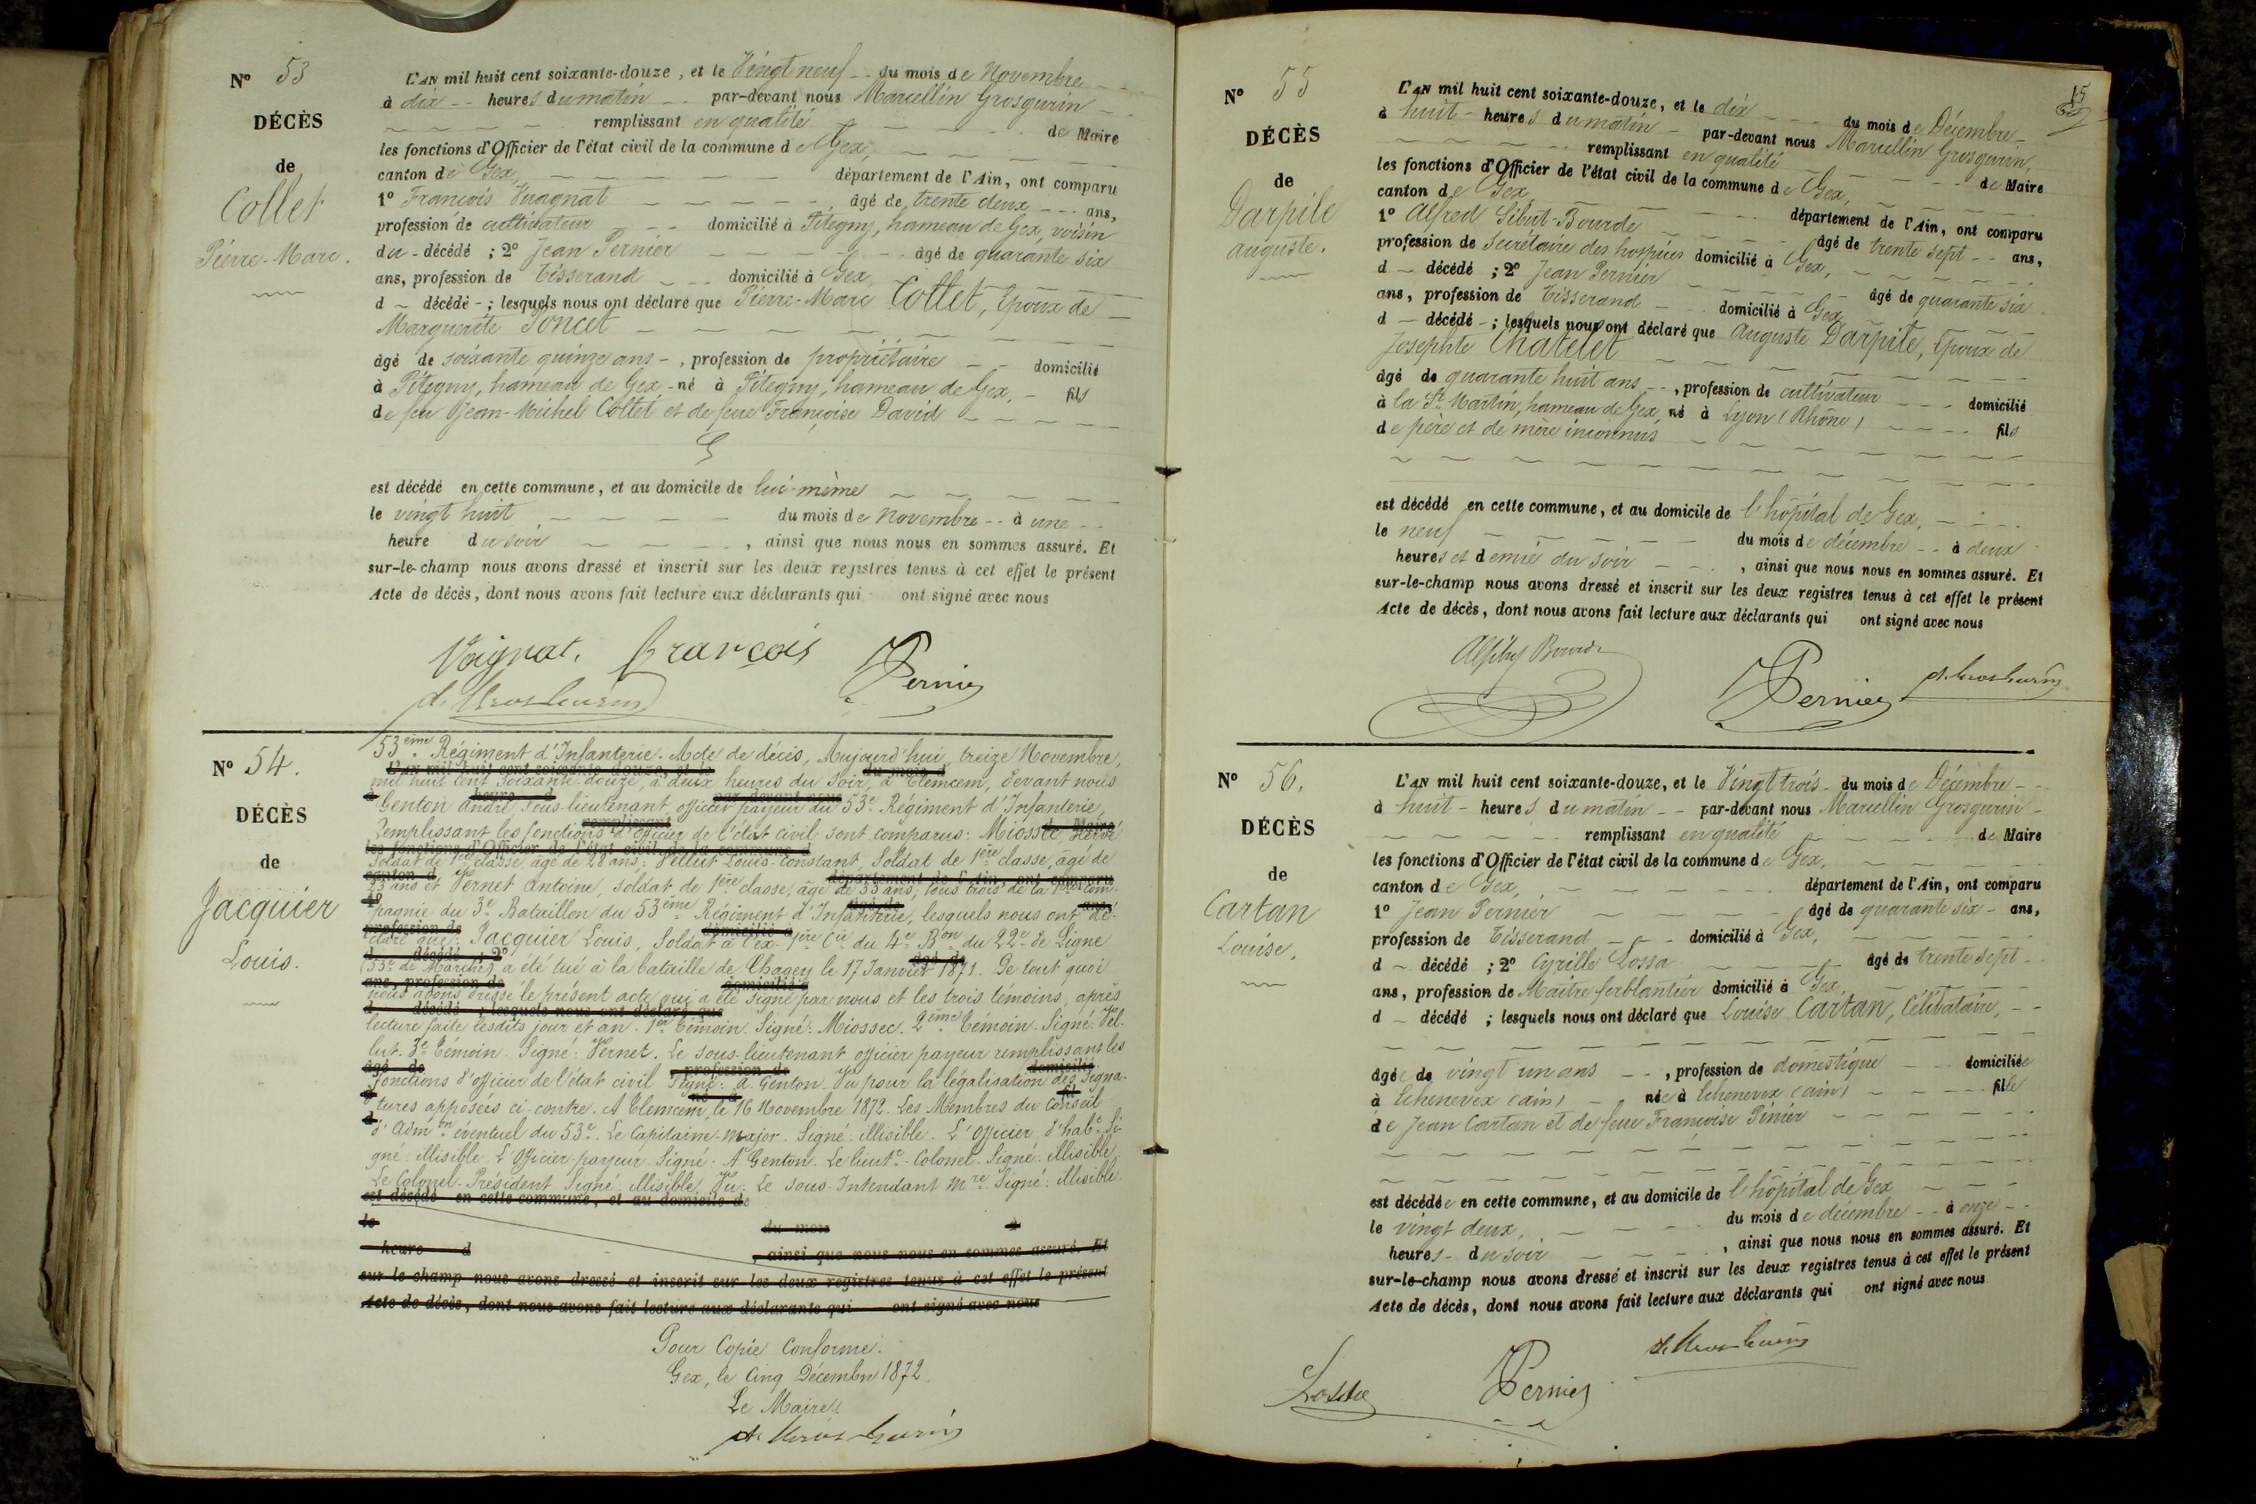 N° 53
DÉCÈS
de
Collet
Pierre-Marc.
L'AN mil huit cent soixante-douze, et le Vingt neuf du mois de Novembre
à dix heures du matin par-devant nous Marcellin Grosgurin
remplissant en qualité de Maire
les fonctions d'Officier de l'état civil de la commune de Gex,
canton de Gex, département de l'Ain, ont comparu
1° François Vuagnat, âgé de trente deux ans,
profession de cultivateur domicilié à Pitegny, hameau de Gex, voisin
du décédé ; 2° Jean Pernier âgé de quarante six
ans, profession de Tisserand domicilié à Gex
d décédé ; lesquels nous ont déclaré que Pierre-Marc Collet, Epoux de
Marguerite Poncet
âgé de soixante quinze ans, profession de propriétaire domicilié
à Pitegny, hameau de Gex né à Pitegny, hameau de Gex, fils
de feu Jean-Michel Collet et de feue Françoise David
est décédé en cette commune, et au domicile de lui-même
le vingt huit du mois de Novembre à une
heure du soir, ainsi que nous nous en sommes assuré. Et
sur-le-champ nous avons dressé et inscrit sur les deux registres tenus à cet effet le présent
Acte de décès, dont nous avons fait lecture aux déclarants qui ont signé avec nous
Voignat. François Pernier
M. Grosgurin
N° 54.
DÉCÈS
de
Jacquier
Louis.
53ème Régiment d'Infanterie. Acte de décès, Aujourd'hui treize Novembre,
mil huit cent soixante-douze, à deux heures du soir, à Tlemcem, devant nous
Genton André, sous-lieutenant officier payeur du 53e Régiment d'Infanterie,
Remplissant les fonctions d'officier de l'état civil sont comparus: Miossec Hervé
Soldat de 1ère classe âgé de 28 ans; Vellut Louis-Constant, Soldat de 1ère classe, âgé de
23 ans et Vernet Antoine, soldat de 1ère classe, âgé de 35 ans, tous trois de la 1ère Com-
pagnie du 3e Bataillon du 53ème Régiment d'Infanterie, lesquels nous ont dé-
claré que: Jacquier Louis, Soldat à l'ex-1ère Cie du 4e Bon du 22e de Ligne
(53e de Marche) a été tué à la bataille de Chagey le 17 Janvier 1871. De tout quoi
nous avons dressé le présent acte qui a été signé par nous et les trois témoins, après
lecture faite lesdits jour et an. 1er Témoin Signé: Miossec. 2ème Témoin. Signé: Vel-
lut. 3e Témoin. Signé: Vernet. Le sous-lieutenant officier payeur remplissant les
fonctions d'officier de l'état civil Signé: A. Genton. Vu pour la légalisation des signa-
tures apposées ci-contre. A Tlemcem, le 16 Novembre 1872. Les Membres du Conseil
d'Admon éventuel du 53e. Le Capitaine-Major. Signé: illisible. L'Officier d'habt Si-
gné: illisible. L'Officier payeur Signé: A Genton. Le lieutt-Colonel. Signé: illisible
Le Colonel-Président Signé: illisible. Vu: Le sous-Intendant Mre Signé: illisible.
est décédé en cette commune, et au domicile de
le du mois à
heure d, ainsi que nous nous en sommes assuré. Et
sur-le-champ nous avons dressé et inscrit sur les deux registres tenus à cet effet le présent
Acte de décès, dont nous avons fait lecture aux déclarants qui ont signé avec nous
Pour Copie Conforme.
Gex, le Cinq Décembre 1872.
Le Maire
M. Grosgurin
15
N° 55
DÉCÈS
de
Darpile
auguste.
L'AN mil huit cent soixante-douze, et le dix du mois de Décembre
à huit heures du matin par-devant nous Marcellin Grosgurin,
remplissant en qualité de Maire
les fonctions d'Officier de l'état civil de la commune de Gex,
canton de Gex, département de l'Ain, ont comparu
1° Alfred Sibut-Bourde âgé de trente sept ans,
profession de Secrétaire des hospices domicilié à Gex,
d décédé ; 2° Jean Pernier âgé de quarante six
ans, profession de Tisserand domicilié à Gex
d décédé ; lesquels nous ont déclaré que Auguste Darpile, Epoux de
Josephte Chatelet
âgé de quarante huit ans, profession de cultivateur domicilié
à la St Martin, hameau de Gex né à Lyon (Rhône) fils
de père et de mère inconnus
est décédé en cette commune, et au domicile de l'hôpital de Gex,
le neuf du mois de décembre à deux
heures et demie du soir, ainsi que nous nous en sommes assuré. Et
sur-le-champ nous avons dressé et inscrit sur les deux registres tenus à cet effet le présent
Acte de décès, dont nous avons fait lecture aux déclarants qui ont signé avec nous
Pernier M. Grosgurin
N° 56.
DÉCÈS
de
Cartan
Louise.
L'AN mil huit cent soixante-douze, et le Vingt trois du mois de Décembre
à huit heures du matin par-devant nous Marcellin Grosgurin
remplissant en qualité de Maire
les fonctions d'Officier de l'état civil de la commune de Gex,
canton de Gex, département de l'Ain, ont comparu
1° Jean Pernier âgé de quarante six ans,
profession de Tisserand domicilié à Gex,
d décédé ; 2° Cyrille Lossa âgé de trente sept
ans, profession de Maître ferblantier domicilié à Gex
d décédé ; lesquels nous ont déclaré que Louise Cartan, Célibataire,
âgée de vingt un ans, profession de domestique domiciliée
à Echenevex (ain) née à Echenevex (ain) fille
de Jean Cartan et de feue Françoise Pinier
est décédée en cette commune, et au domicile de l'hôpital de Gex
le vingt deux, du mois de décembre à onze
heures du soir, ainsi que nous nous en sommes assuré. Et
sur-le-champ nous avons dressé et inscrit sur les deux registres tenus à cet effet le présent
Acte de décès, dont nous avons fait lecture aux déclarants qui ont signé avec nous
M. Grosgurin
Lossa Pernier